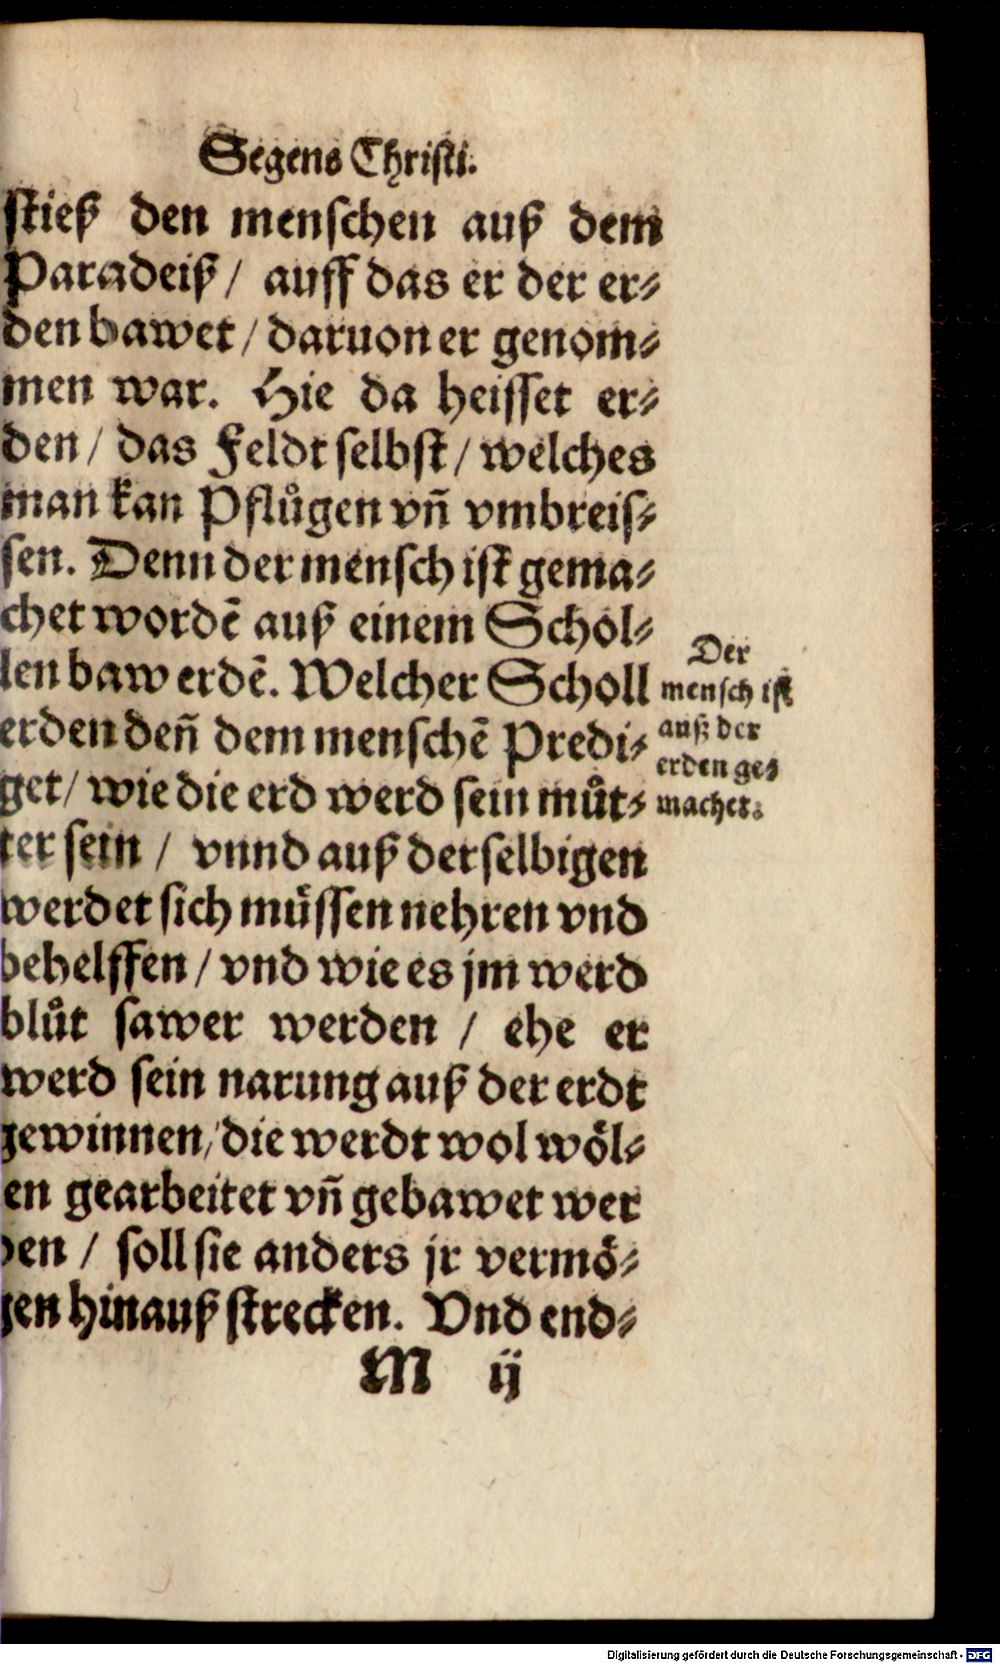 Segens Christi.
stieß den menschen auß dem
Paradeiß / auff das er der er⸗
den bawet / daruon er genom⸗
men war. Hie da heisset er⸗
den / das Feldt selbst / welches
man kan Pflůgen vñ vmbreis⸗
sen. Denn der mensch ist gema⸗
chet wordē auß einem Schol⸗
len baw erdē. Welcher Scholl
erden deñ dem menschē Predi⸗
get / wie die erd werd sein můt⸗
ter sein / vnnd auß derselbigen
werdet sich müssen nehren vnd
behelffen / vnd wie es jm werd
blůt sawer werden / ehe er
werd sein narung auß der erdt
gewinnen / die werdt wol wöl⸗
en gearbeitet vñ gebawet wer
den / soll sie anders jr vermö⸗
gen hinauß strecken. Vnd end⸗
M ij
Der
mensch ist
auß der
erden ge⸗
machet.
Digitalisierung gefördert durch die Deutsche Forschungsgemeinschaft - DFG